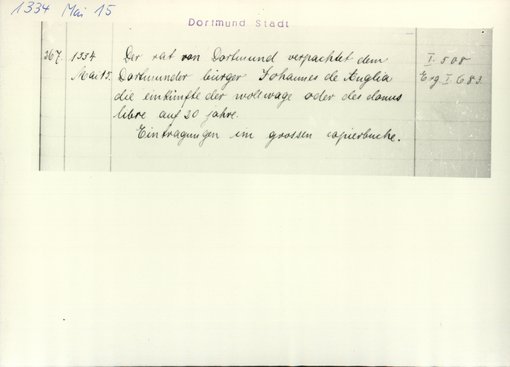 1334 Mai 15
Dortmund Stadt
267. 1334 Der rat von Dortmund verpachtet dem I. 508
Mai 15. Dortmunder bürger Johannes de Anglia Erg. I. 683.
die einkünfte der wollwage oder des domus
libre auf 20 jahre.
Eintragungen im grossen copierbuche.